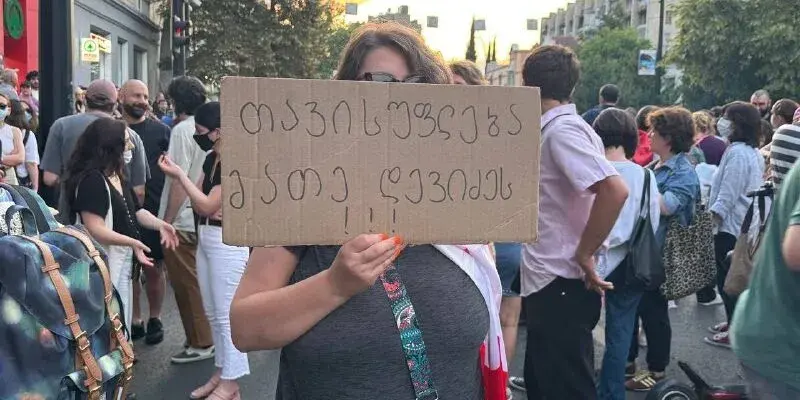 თავისუფლება
მათე დევიძეს
!!!